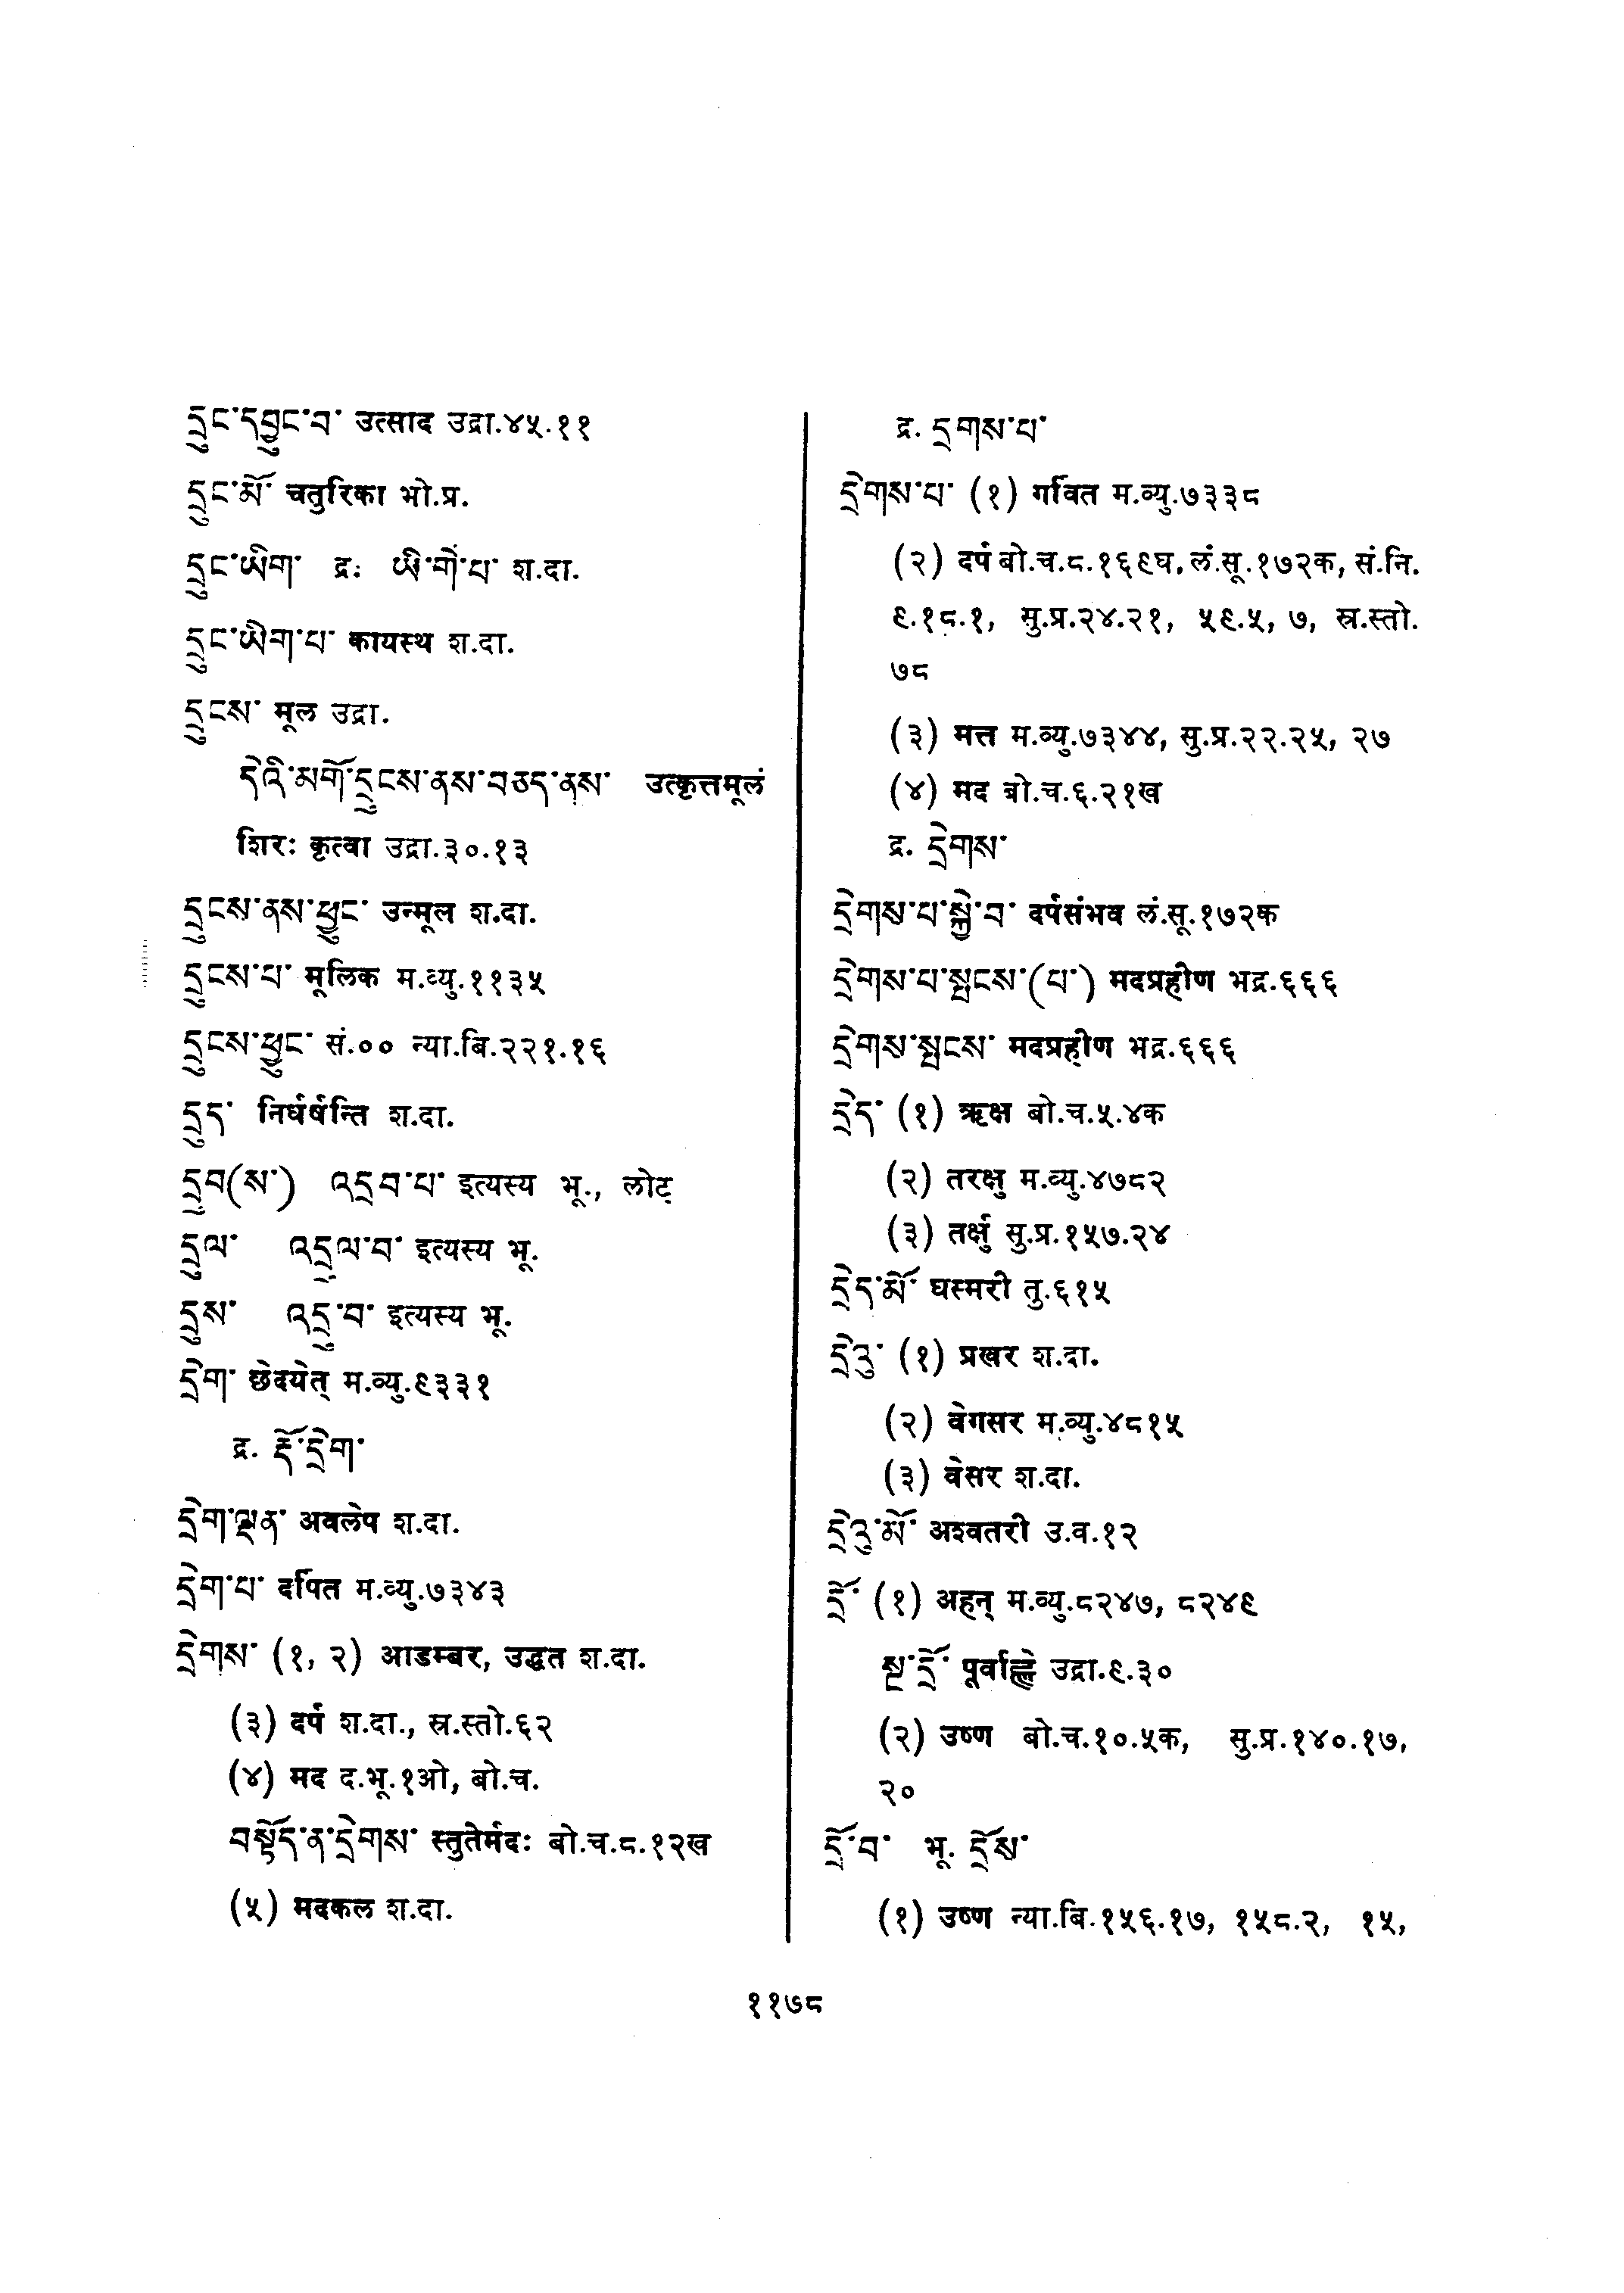 དྲུང་དབྱུང་བ་ उत्साद उद्रा.४५.११
དྲུང་མོ་ चतुरिका भो.प्र.
དྲུང་ཡིག་ द्र: ཡི་གེ་པ་ श.दा.
དྲུང་ཡིག་པ་ कायस्थ श.दा.
དྲུངས་ मूल उद्रा.
དེའི་མགོ་དྲུངས་ནས་བཅད་ནས་ उत्कृत्तमूलं
शिरः कृत्वा उद्रा.३०.१३
དྲུངས་ནས་ཕྱུང་ उन्मूल श.दा.
དྲུངས་པ་ मूलिक म.व्यु.११३५
དྲུངས་ཕྱུང་ सं.०० न्या.बि.२२१.१६
དྲུད་ निर्घर्षन्ति श.दा.
དྲུབ(ས་) འདྲུབ་པ་ इत्यस्य भू., लोट्
དྲུལ་ འདྲུལ་བ་ इत्यस्य भू.
དྲུས་ འདྲུ་བ་ इत्यस्य भू.
དྲེག་ छेदयेत् म.व्यु.९३३१
द्र. རྡོ་དྲེག་
དྲེག་ལྡན་ अवलेप श.दा.
དྲེག་པ་ दर्पित म.व्यु.७३४३
དྲེགས་ (१, २) आडम्बर, उद्धत श.दा.
(३) दर्प श.दा., स्र.स्तो.६२
(४) मद द.भू.१ओ, बो.च.
བསྟོད་ན་དྲེགས་ स्तुतेर्मदः बो.च.८.१२ख
(५) मदकल श.दा.
द्र. དྲགས་པ་
དྲེགས་པ་ (१) गर्वित म.व्यु.७३३८
(२) दर्प बो.च.८.१६९घ, लं.सू.१७२क, सं.नि.
९.१८.१, सु.प्र.२४.२१, ५९.५, ७, स्र.स्तो.
७८
(३) मत्त म.व्यु.७३४४, सु.प्र.२२.२५, २७
(४) मद बो.च.६.२१ख
द्र. དྲེགས་
དྲེགས་པ་སྐྱེ་བ་ दर्पसंभव लं.सू.१७२क
དྲེགས་པ་སྤངས་(པ་) मदप्रहीण भद्र.६६६
དྲེགས་སྤངས་ मदप्रहीण भद्र.६६६
དྲེད་ (१) ऋक्ष बो.च.५.४क
(२) तरक्षु म.व्यु.४७८२
(३) तर्क्षु सु.प्र.१५७.२४
དྲེད་མོ་ घस्मरी तु.६१५
དྲེའུ་ (१) प्रखर श.दा.
(२) वेगसर म.व्यु.४८१५
(३) वेसर श.दा.
དྲེའུ་མོ་ अश्वतरी उ.व.१२
དྲོ་ (१) अहन् म.व्यु.८२४७, ८२४९
སྔ་དྲོ་ पूर्वाह्णे उद्रा.९.३०
(२) उष्ण बो.च.१०.५क, सु.प्र.१४०.१७,
२०
དྲོ་བ་ भू. དྲོས་
(१) उष्ण न्या.बि.१५६.१७, १५८.२, १५,
११७८